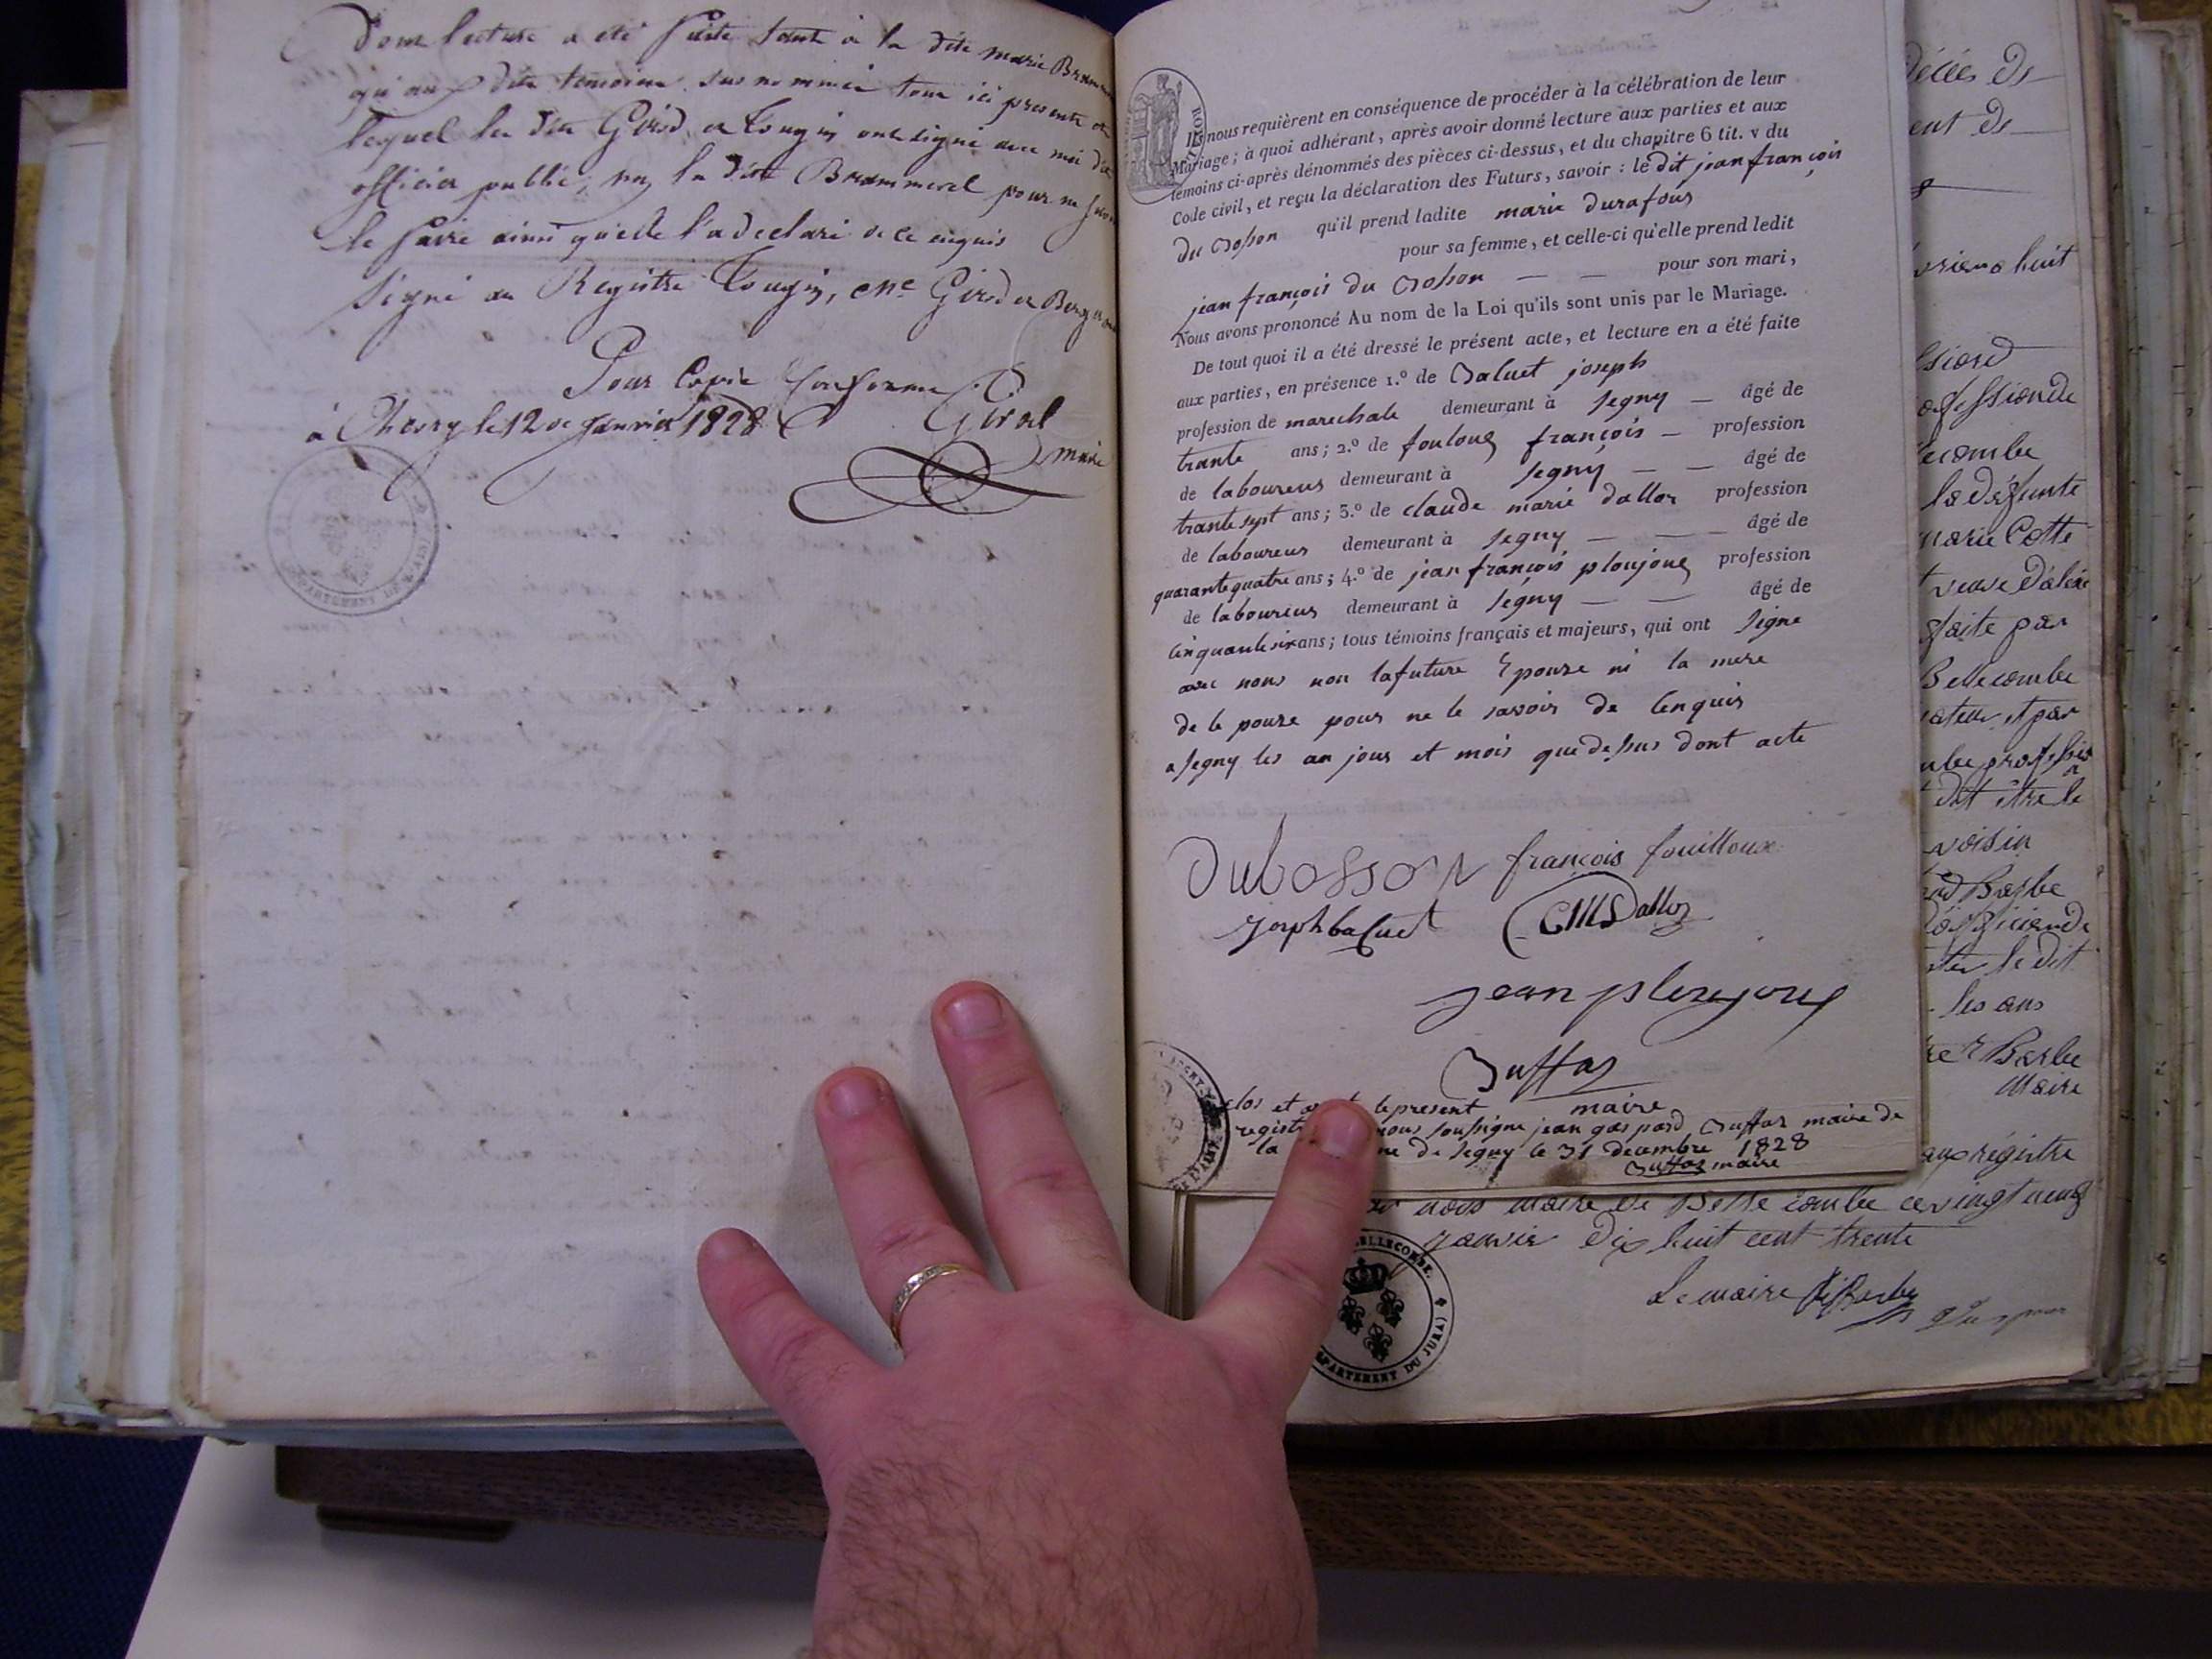 Dont lecture a été faite tant à la dite marie Bram
qu'aux dits temoins sus nommés tous ici presents et
lequel les dits Girod et Tougin ont signé avec moi dit
officier public, non la dite Brammerel pour ne savoir
le faire ainsi qu'elle l'a declaré de ce enquis
signé au Registre Tougin, Girod et
Pour Copie Conforme
à Chevry le 12 de janvier 1828 Girod
maire
DÉPARTEMENT DE L'AIN
Ils nous requièrent en conséquence de procéder à la célébration de leur
Mariage ; à quoi adhérant, après avoir donné lecture aux parties et aux
témoins ci-après dénommés des pièces ci-dessus, et du chapitre 6 tit. v du
Code civil, et reçu la déclaration des Futurs, savoir : le dit jean françois
du Bosson qu'il prend ladite marie durafour
pour sa femme, et celle-ci qu'elle prend ledit
jean françois du Bosson — — pour son mari,
Nous avons prononcé Au nom de la Loi qu'ils sont unis par le Mariage.
De tout quoi il a été dressé le présent acte, et lecture en a été faite
aux parties, en présence 1.º de Baluet joseph
profession de marechale demeurant à segny — âgé de
trante ans ; 2.º de fouloux françois — profession
de laboureur demeurant à segny — — âgé de
trante sept ans ; 3.º de claude marie dalloz profession
de laboureur demeurant à segny — — — âgé de
quarante quatre ans ; 4.º de jean françois ploujoux profession
de laboureur demeurant à segny — — âgé de
cinquante six ans ; tous témoins français et majeurs, qui ont signe
avec nous non lafuture Epouze ni la mere
de le pouze pour ne le savoir de lenquis
a segny les an jour et mois que desus dont acte
Dubosson françois fouilloux
Joseph baluet CM Dalloz
jean plonjoux
Buffaz
maire
clos et le present
nous sousigne jean gaspard Buffaz maire de
la de segny le 31 decembre 1828
Buffaz maire
décés de
ent de
huit
ofession de
ecombe
la défunte
marie Cotte
veuve d'aléxi
faite par
Bellecombe
ateur et par
dit être le
voisin
Barbe
le dit
les ans
Barbe
Maire
aux régistre
nous maire de Belle combe ce vingt neuf
janvier Dix huit cent trente
Le maire Barbe
BELLECOMBE,
DÉPARTEMENT DU JURA)